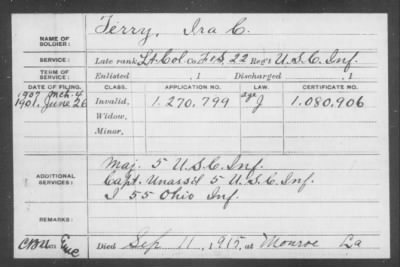 NAME OF SOLDIER: Terry, Ira C.
SERVICE: Late rank Lt. Col. Co. F&S, 22 Reg't U.S.C. Inf.
TERM OF SERVICE: Enlisted , 1 Discharged , 1
DATE OF FILING. CLASS. APPLICATION NO. LAW. CERTIFICATE NO.
1907 Mch. 4
1901, June 26 Invalid, 1.270.799 age J 1.080.906
Widow,
Minor,
ADDITIONAL SERVICES:
Maj. 5 U.S.C. Inf.
Capt. Unass'd 5 U.S.C. Inf.
I 55 Ohio Inf.
REMARKS:
Died Sep. 11, 1915, at Monroe La